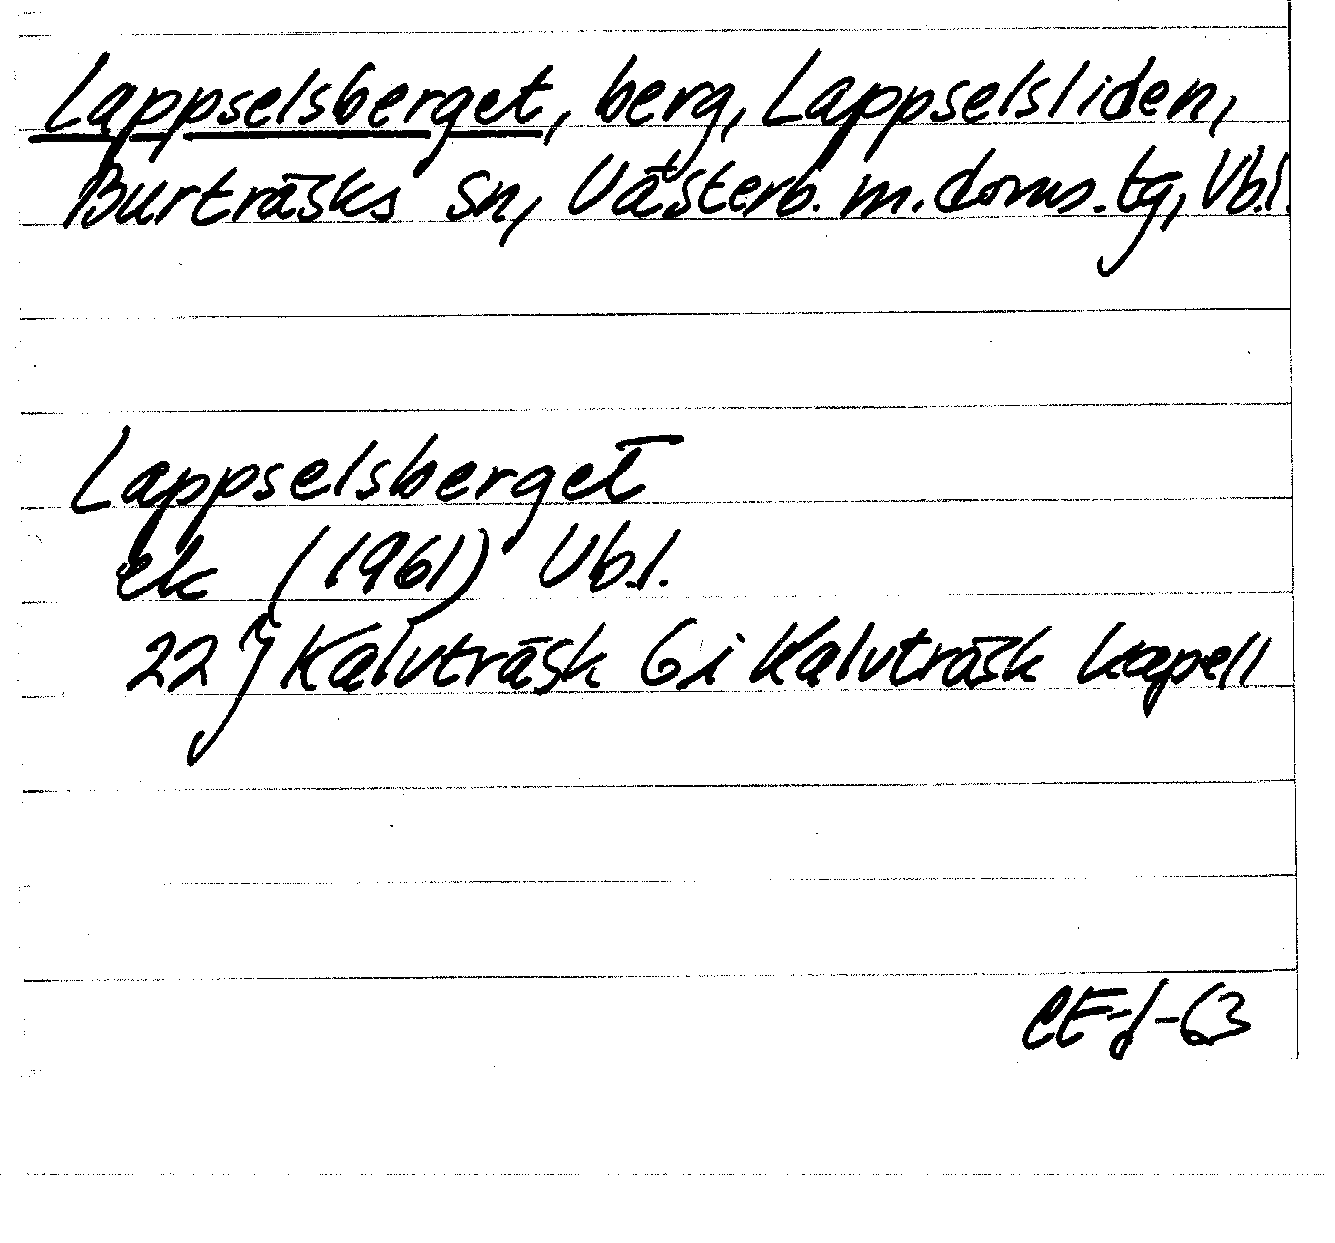 Lappselsberget, berg, Lappselsliden,
Burträsks sn, Västerb. m. doms. tg, Vb.l.
Lappselsberget
ek (1961) Vb.l.
22 J Kalvträsk 6 i Kalvträsk kapell